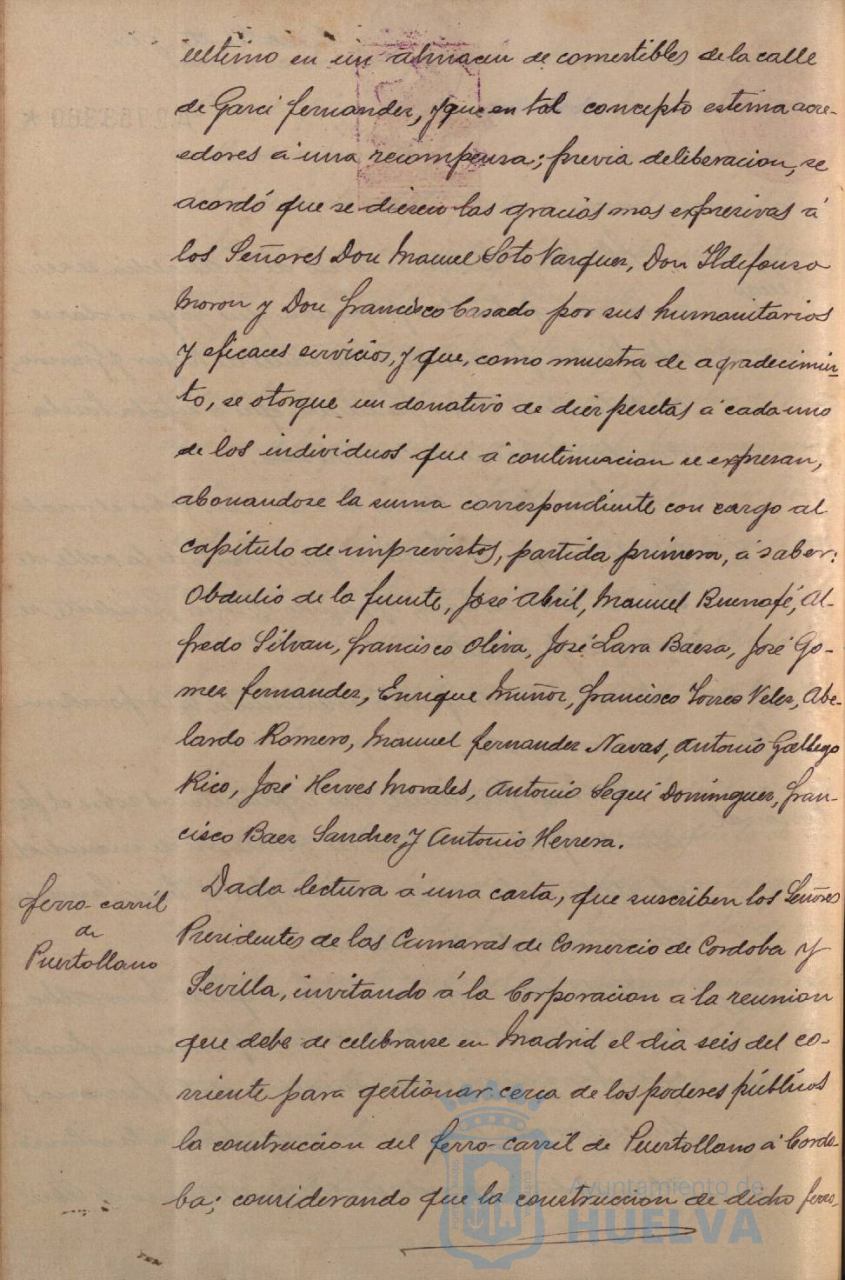 ultimo en un almacen de comestibles de la calle
de Garci Fernandez, y que en tal concepto estima acre-
edores á una recompensa; previa deliberacion, se
acordó que se diesen las gracias mas expresivas á
los Señores Don Manuel Soto Vazquez, Don Ildefonso
Moron y Don Francisco Casado por sus humanitarios
y eficaces servicios, y que, como muestra de agradecimien
to, se otorgue un donativo de diez pesetas á cada uno
de los individuos que á continuacion se expresan,
abonandose la suma correspondiente con cargo al
capitulo de imprevistos, partida primera, á saber:
Obdulio de la Fuente, José Abril, Manuel Buenafé, Al-
fredo Silvan, Francisco Oliva, José Lara Baeza, José Go-
mez Fernandez, Enrique Muñoz, Francisco Torres Velez, Abe-
lardo Romero, Manuel Fernandez Navas, Antonio Gallego
Rico, José Herves Morales, Antonio Seguí Dominguez, Fran-
cisco Baez Sanchez y Antonio Herrera.
Ferro-carril
de
Puertollano
Dada lectura á una carta, que suscriben los Señores
Presidentes de las Camaras de Comercio de Cordoba y
Sevilla, invitando á la Corporacion a la reunion
que debe de celebrarse en Madrid el dia seis del co-
rriente para gestionar cerca de los poderes públicos
la construccion del ferro-carril de Puertollano á Cordo-
ba; considerando que la construccion de dicho ferro-
Ayuntamiento de
HUELVA